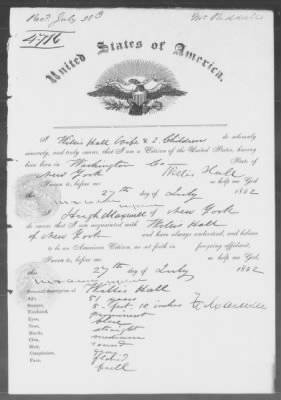 Recd July 28
4716
United States of America.
I Willis Hall Wife & 2 Children do solemnly
sincerely, and truly swear, that I am a Citizen of the United States, having
been born in Washington Co State of
New York Willis Hall
Sworn to, before me so help me God.
this 27th day of July 1852
I Hugh Maxwell of New York
do swear that I am acquainted with Willis Hall
of New York and have always understood, and believe
to be an American Citizen, as set forth in foregoing affidavit,
Sworn to, before me so help me God.
this 27th day of July 1852
Personal description of Willis Hall
Age, 51 years
Stature, 5 feet 10 inches
Forehead, prominent
Eyes, blue
Nose, straight
Mouth, medium
Chin, round
Hair,
Complexion, florid
Face, full